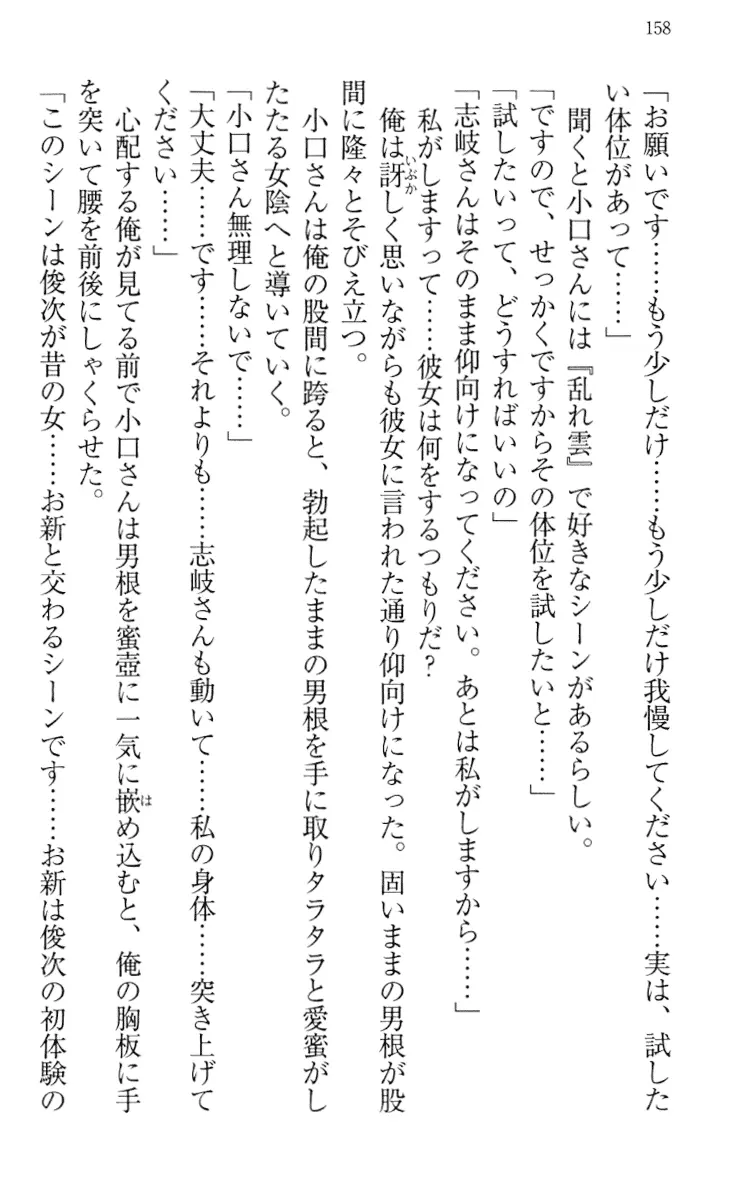 158
「お願いです……もう少しだけ……もう少しだけ我慢してください……実は、試した
い体位があって……」
聞くと小口さんには『乱れ雲』で好きなシーンがあるらしい。
「ですので、せっかくですからその体位を試したいと……」
「試したいって、どうすればいいの」
「志岐さんはそのまま仰向けになってください。あとは私がしますから……」
私がしますって……彼女は何をするつもりだ?
俺は訝しく思いながらも彼女に言われた通り仰向けになった。固いままの男根が股
いぶか
間に隆々とそびえ立つ。
小口さんは俺の股間に跨ると、勃起したままの男根を手に取りタラタラと愛蜜がし
たたる女陰へと導いていく。
「小口さん無理しないで……」
「大丈夫……です……それよりも……志岐さんも動いて……私の身体……突き上げて
ください……」
心配する俺が見てる前で小口さんは男根を蜜壺に一気に嵌め込むと、俺の胸板に手
は
を突いて腰を前後にしゃくらせた。
「このシーンは俊次が昔の女……お新と交わるシーンです……お新は俊次の初体験の